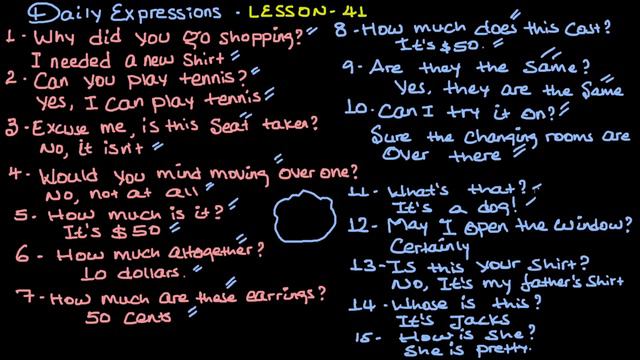 Daily Expressions - LESSON-41
1- Why did you go shopping?
I needed a new shirt
2- Can you play tennis?
Yes, I can play tennis
3- Excuse me, is this Seat taken?
No, it isn't
4- Would you mind moving over one?
No, not at all
5- How much is it?
It's $50
6- How much altogether?
10 dollars.
7- How much are these earrings?
50 cents
8- How much does this cost?
It's $50.
9- Are they the same?
Yes, they are the same
10- Can I try it on?
Sure the changing rooms are
over there
11- What's that?
It's a dog!
12- May I open the window?
Certainly
13- Is this your shirt?
No, It's my father's shirt
14- Whose is this?
It's Jacks
15- How is she?
She is pretty.